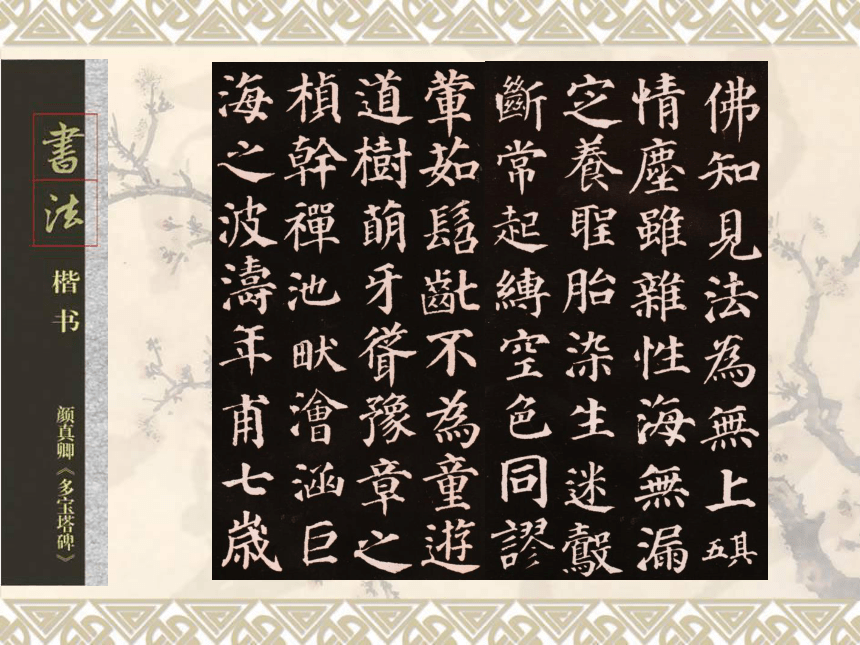 書法
楷书
颜真卿《多宝塔碑》
佛知見法為無上其五
情塵雖雜性海無漏
定養聖胎染生迷鷇
斷常起縛空色同謬
葷茹髫齔不為童遊
道樹萌牙聳豫章之
楨幹禪池畎澮涵巨
海之波濤年甫七歲